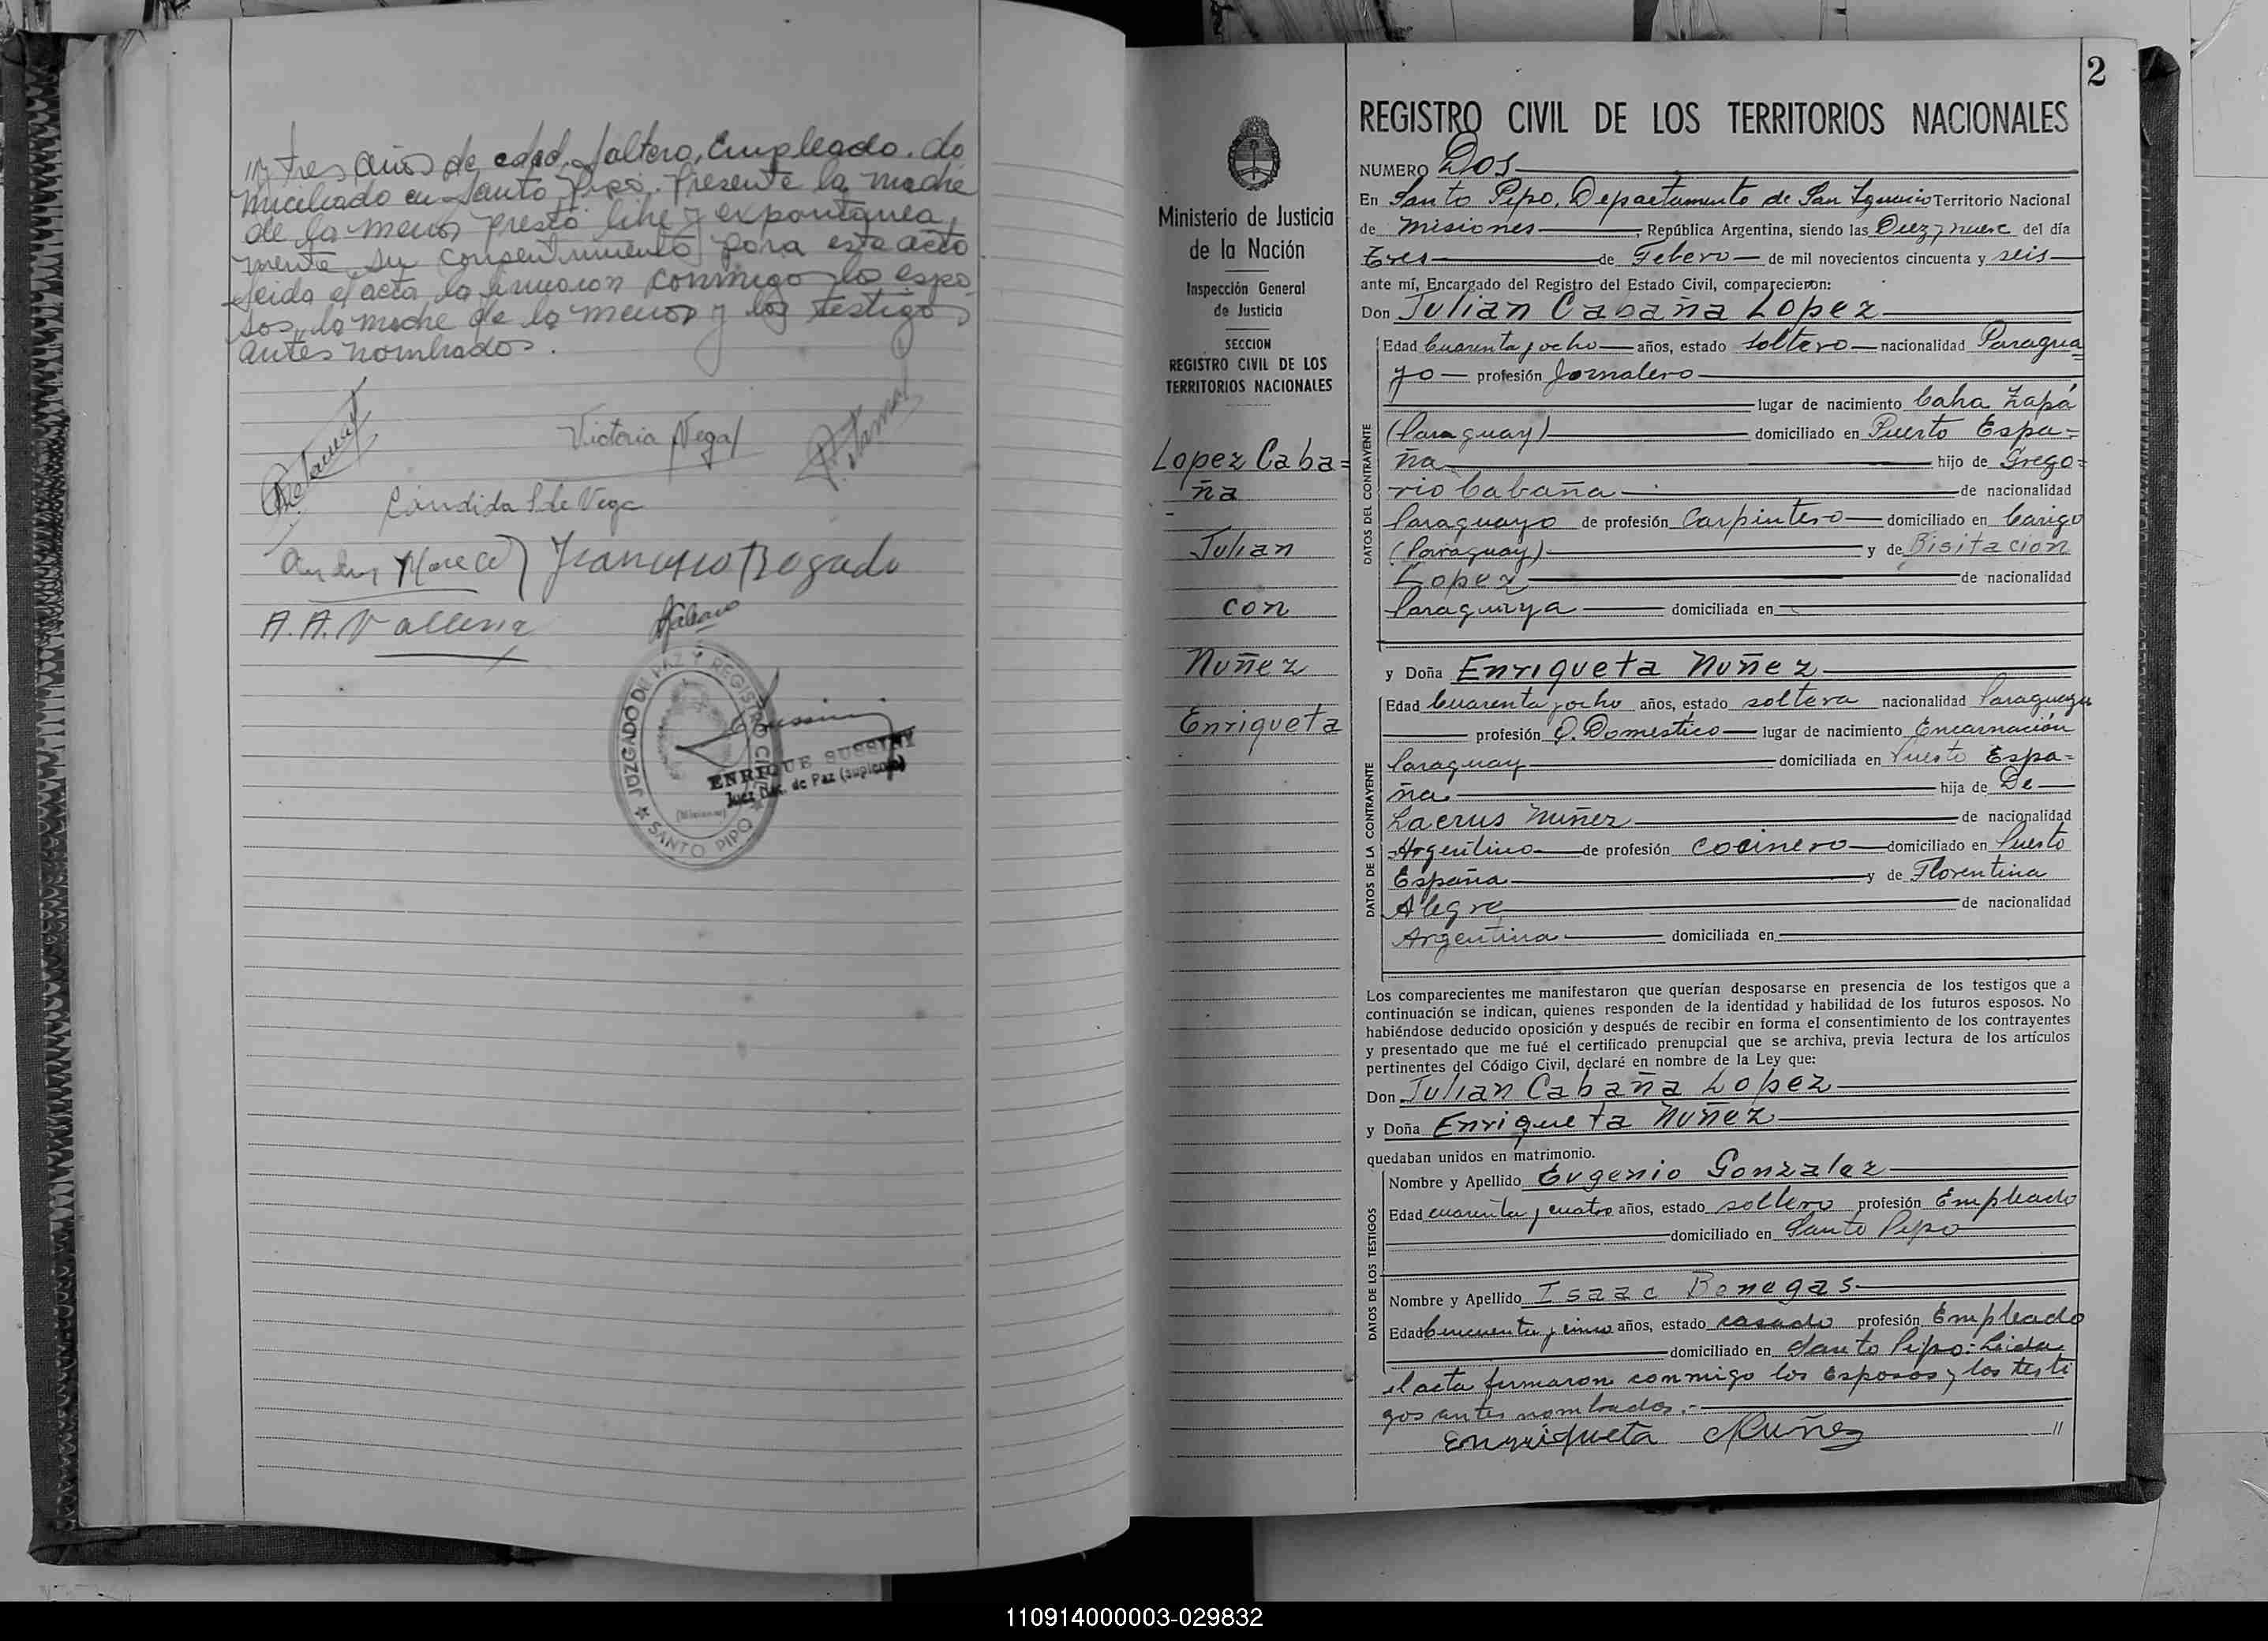 " y tres años de edad, soltero, Empleado. do
miciliado en Santo Pipó. Presente la madre
de la menor prestó libre y expontanea,
mente su consentimiento para este acto
Leida el acta la firmaron conmigo los espo
sos, la madre de la menor y los testigos
antes nombrados.
Victoria Vega
Cándida S de Vega
Francisco Bogado
JUZGADO DE PAZ Y REGISTRO CIVIL
SANTO PIPO
(Misiones)
ENRIQUE SUSSINY
Juez Nac. de Paz (suplente)
2
Ministerio de Justicia
de la Nación
Inspección General
de Justicia
SECCION
REGISTRO CIVIL DE LOS
TERRITORIOS NACIONALES
Lopez Caba=
ña
Julian
con
Nuñez
Enriqueta
REGISTRO CIVIL DE LOS TERRITORIOS NACIONALES
NUMERO Dos
En Santo Pipo, Departamento de San Ignacio Territorio Nacional
de Misiones, República Argentina, siendo las Diez y nueve del día
Tres de Febero de mil novecientos cincuenta y seis
ante mí, Encargado del Registro del Estado Civil, comparecieron:
Don Julian Cabaña Lopez
DATOS DEL CONTRAYENTE
Edad Cuarenta y ocho años, estado soltero nacionalidad Paragua
yo profesión Jornalero
lugar de nacimiento Caha Zapá
(Paraguay) domiciliado en Puerto Espa=
ña hijo de Grego=
rio Cabaña de nacionalidad
Paraguayo de profesión Carpintero domiciliado en
(Paraguay) y de Bisitacion
Lopez de nacionalidad
Paraguaya domiciliada en
y Doña Enriqueta Nuñez
DATOS DE LA CONTRAYENTE
Edad Cuarenta y ocho años, estado soltera nacionalidad Paraguaya
profesión Q. Domestico lugar de nacimiento Encarnación
Paraguay domiciliada en Puesto Espa=
ña hija de De
Lacrus Nuñez de nacionalidad
Argentino de profesión cocinero domiciliado en Puesto
España y de Florentina
Alegre de nacionalidad
Argentina domiciliada en
Los comparecientes me manifestaron que querían desposarse en presencia de los testigos que a
continuación se indican, quienes responden de la identidad y habilidad de los futuros esposos. No
habiéndose deducido oposición y después de recibir en forma el consentimiento de los contrayentes
y presentado que me fué el certificado prenupcial que se archiva, previa lectura de los artículos
pertinentes del Código Civil, declaré en nombre de la Ley que:
Don Julian Cabaña Lopez
y Doña Enriqueta Nuñez
quedaban unidos en matrimonio.
DATOS DE LOS TESTIGOS
Nombre y Apellido Eugenio Gonzalez
Edad cuarenta y cuatro años, estado soltero profesión Empleado
domiciliado en Santo Pipo
Nombre y Apellido Isaac Benegas
Edad Cincuenta y cinco años, estado casado profesión Empleado
domiciliado en Santo Pipo: Leida
el acta firmaron conmigo los Esposos y los testi
gos antes nombrados.-
Enriqueta Nuñez "
110914000003-029832